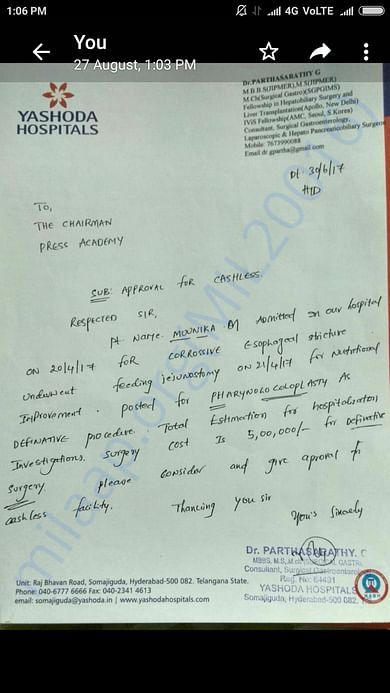 1:06 PM 4G VoLTE
You
27 August, 1:03 PM
YASHODA
HOSPITALS
Dr. PARTHASARATHY G
M.B.B.S(JIPMER),M.S(JIPMER)
M.Ch(Surgical Gastro)(SGPGIMS)
Fellowship in Hepatobiliary Surgery and
Liver Transplantation(Apollo, New Delhi)
Fellowship(AMC, Seoul, S.Korea)
Consultant, Surgical Gastroenterology,
Laparoscopic & Hepato Pancreaticobiliary Surgeon
Mobile: 7673990088
Email dr.gpartha@gmail.com
Dt. 30/6/17
HYD
To,
THE CHAIRMAN
PRESS ACADEMY
SUB: APPROVAL FOR CASHLESS.
RESPECTED SIR,
Pt Name. MOUNIKA.M Admitted in our hospital
ON 20/4/17 FOR CORROSSIVE Esophageal stricture
underwent feeding jejunostomy ON 21/4/17 for Nutritional
Improvement. Posted for PHARYNGO COLOPLASTY As
DEFINATIVE procedure. Total Estimation for hospitalization
Investigations. surgery cost Is 5,00,000/- for Definative
Surgery. please consider and give aproval for
cashless facility. Thancing you sir
Your's Sincely
Dr. PARTHASARATHY. G
MBBS, M.S, M.ch (SURGICAL GASTRO)
Consultant, Surgical Gastroenterology
Reg. No: 64491
YASHODA HOSPITALS
Somajiguda, Hyderabad-500 082.
Unit: Raj Bhavan Road, Somajiguda, Hyderabad-500 082. Telangana State.
Phone: 040-6777 6666 Fax: 040-2341 4613
email: somajiguda@yashoda.in | www.yashodahospitals.com
NABH